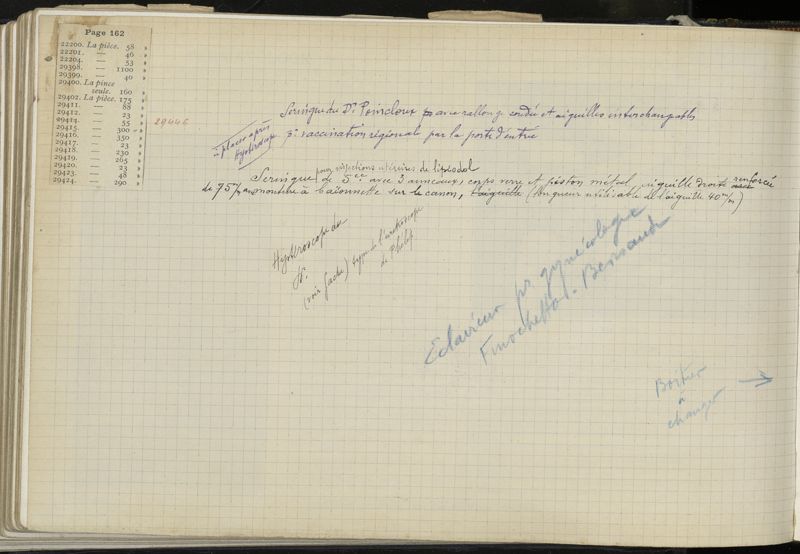 Page 162
22200. La pièce. 58 »
22201. — 46 »
22204. — 53 »
29398. — 1100 »
29399. — 40 »
29400. La pince
seule. 160 »
29402. La pièce. 175 »
29411. — 88 »
29412. — 23 »
29414. — 55 »
29415. — 300 »
29416. — 350 »
29417. — 23 »
29418. — 230 »
29419. — 265 »
29420. — 23 »
29423. — 48 »
29424. — 290 »
29446
à placer après
Hystéroscope
Seringue du Dr Poincloux avec rallong soudée et aiguilles interchangeables
pr vaccination régionale par la porte d'entrée
pour injections utérines de lipiodol
Seringue de 5cc avec 3 anneaux, corps verre et piston métal, aiguille droite renforcée
de 75 m/m monture à baïonnette sur le canon, (longueur utilisable de l'aiguille 40 m/m)
Hystéroscope du
Dr.
(voir Gache) type de l'urétroscope
de
Eclaireur pr gynécologie
Finochetto.
Boitier
à
changer